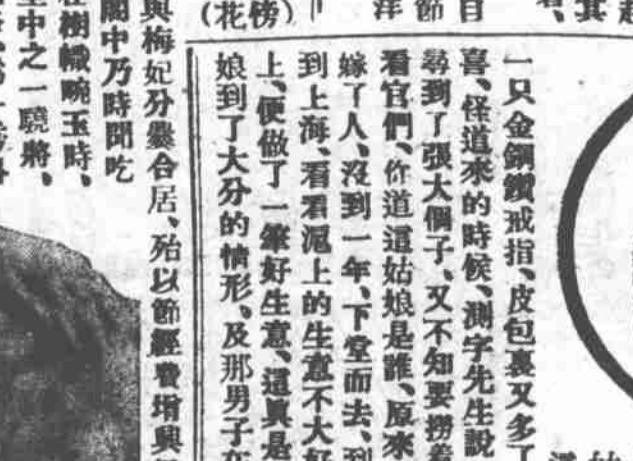 一只金鋼鑽戒指、皮包裏又多了
喜、怪道來的時候、測字先生說
尋到了張大個子、又不知要撈着
看官們、你道這姑娘是誰、原來
嫁了人、沒到一年、下堂而去、到
到上海、看看滬上的生意不大好
上、便做了一筆好生意、這眞是
娘到了大分的情形、及那男子在
(花榜)
洋
節
目
與梅妃分爨合居、殆以節經費增興
閣中乃時聞吃
樹幟畹玉時、
至中之一驍將、